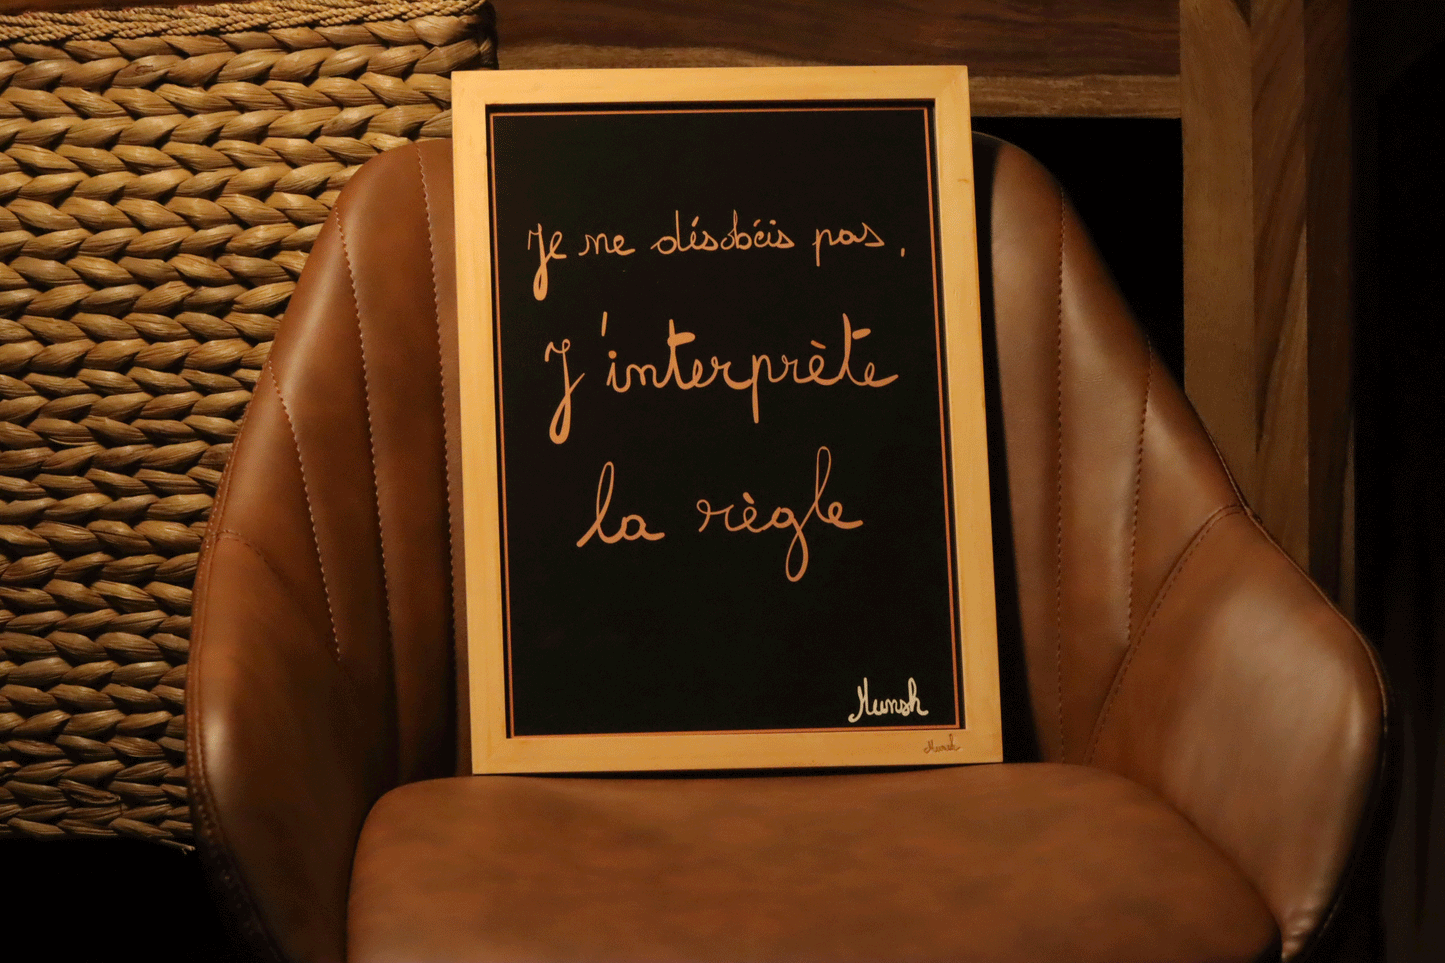 Je ne désobéis pas,
J'interprète
la règle
Munsh
Munsh